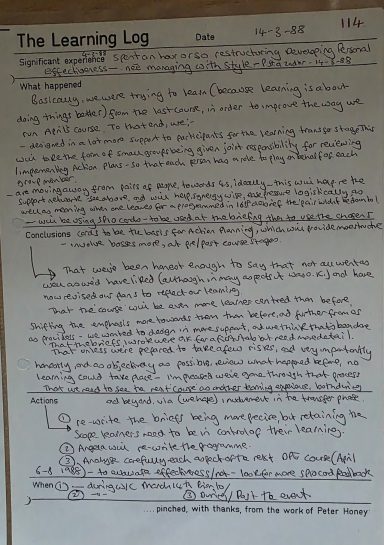 114
The Learning Log Date 14-3-88
4-3-88
Significant experience Spent an hour or so restructuring Developing Personal
Effectiveness - née managing with style - 14-3-88
What happened
Basically, we were trying to learn (because learning is about
doing things better) from the last course, in order to improve the way we
run April's course. To that end, we;-
- designed in a lot more support to participants for the learning transfer stage. This
will take the form of small groups being given joint responsibility for reviewing
implementing Action plans - so that each person has a role to play on behalf of each
group member.
- are moving away from pairs of people, towards 4s, ideally - this will help re the
support network see above, and will help synergy wise, else pressure logistically as
well as meaning when one leaves for a programme
- will be using SPIO cards - to be used at the briefing then to use the chosen 5
Conclusions cards to be the basis for Action Planning, which will provide more structure
- involve bosses more, at pre/post course stages.
That we've been honest enough to say that not all went as
well as we'd have liked (although in many aspects it was O.K.) and have
now revised our plans to reflect our learning.
That the course will be even more learner centred than before
shifting the emphasis more towards them than before, and further from us
as providers - we wanted to design in more support, and we think that's been done
That the briefs I wrote were OK for a first stab but need more detail.
That unless we're prepared to take a few risks, and very importantly
honestly, and as objectively as possible, review what happened before, no
learning could take place - I'm pleased we've gone through that process
That we need to see the next course as another learning experience, both during
Actions and beyond, via (perhaps) involvement in the transfer phase
① re-write the briefs being more precise, but retaining the
scope learners need to be in control of their learning.
② Angela will re-write the programme.
③ Analyse carefully each aspect of the next DPE course (April
6-8 1988) - to evaluate effectiveness/not - look for more SPIO card feedback
When ① - during w/c March 14th
② - " -
③ During/Post the event
.... pinched, with thanks, from the work of Peter Honey